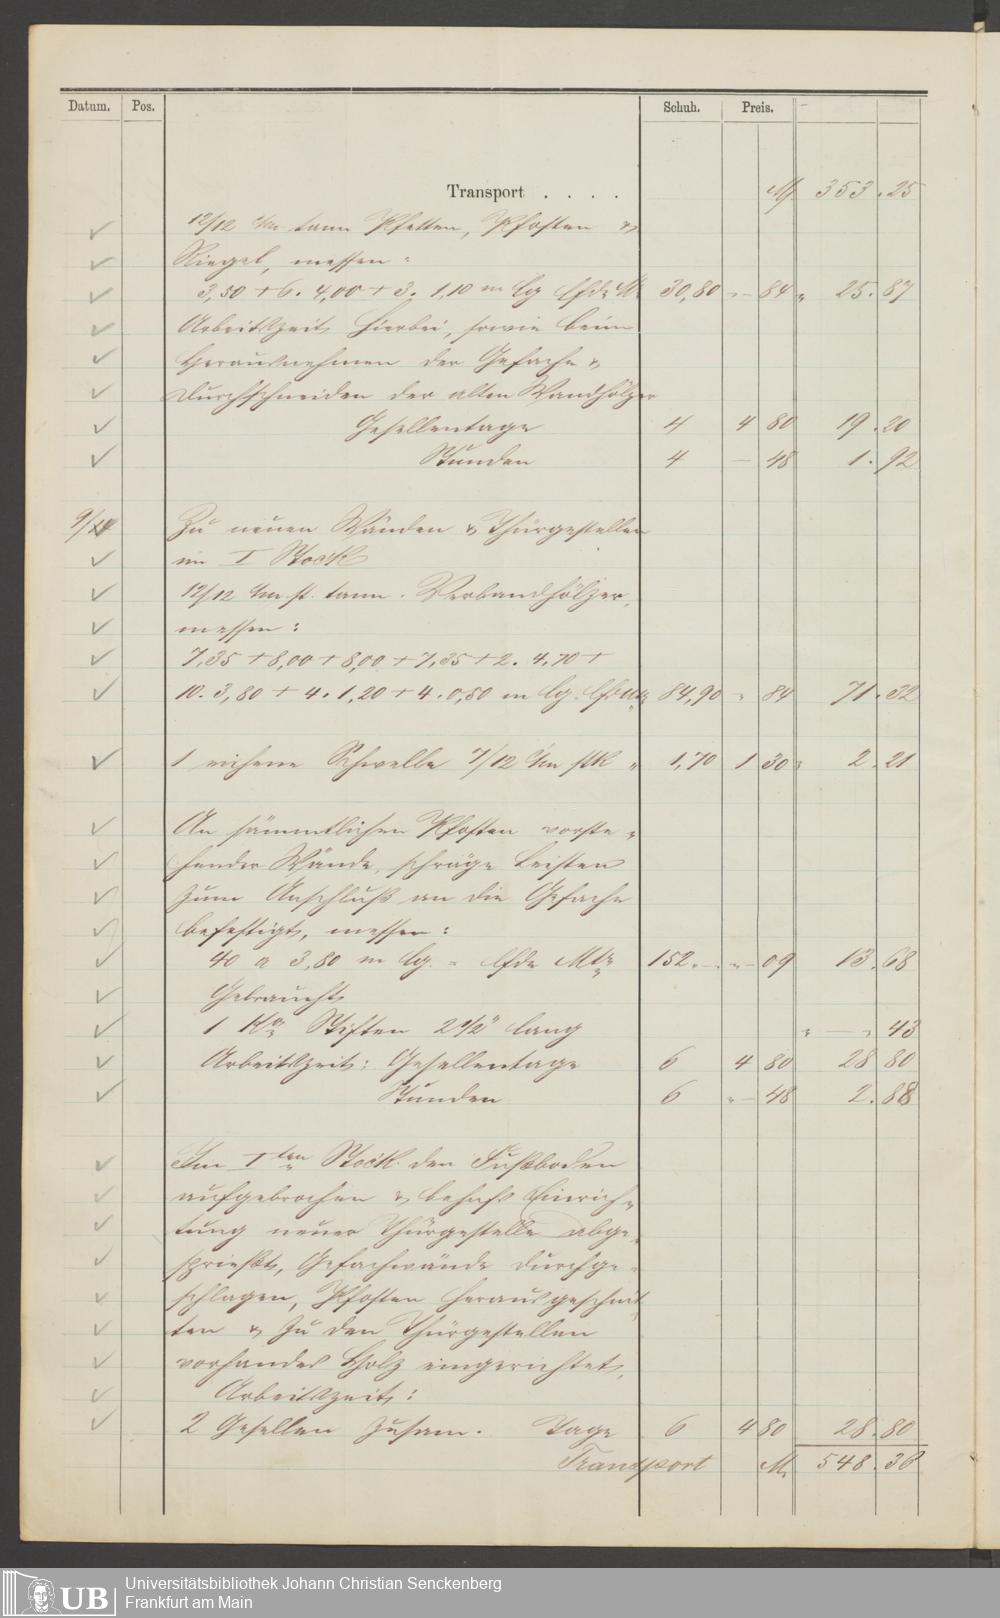 Datum. Pos. Schuh. Preis.
Transport . . . . M 353.25
12/12 c/m tann Pfetten, Pfosten &
Riegel, messen:
3,50 + 6. 4,00 + 3. 1,10 m lg lfde M. 30,80 " — 84 " 25.87
Arbeitszeit hierbei, sowie beim
Herausnehmen der Gefache &
Durchschneiden der alten Wandhölzer
Gesellentage 4 4 80 19.20
Stunden 4 — 48 1.92
9/ Zu neuen Wänden & Thürgestellen
im I Stock
12/12 c/m st. tann. Verbandhölzer,
messen:
7,35 + 8,00 + 8,00 + 7,35 + 2. 4,70 +
10. 3,80 + 4. 1,20 + 4. 0,50 m lg. lfd Mtr 84,90 " 84 71.32
1 eichene Schwelle 7/12 c/m stk " 1,70 1 30 " 2.21
An sämmtlichen Pfosten vorste-
hender Wände, schräge Leisten
zum Anschluß an die Gefache
befestigt, messen:
40 a 3,80 m lg. = lfde Mtr 152 . — " — 09 13.68
Gebraucht
1 Ko Stiften 2 1/2" lang " — " 43
Arbeitszeit: Gesellentage 6 4 80 28 80
Stunden 6 " — 48 2.88
Im I ten Stock den Fußboden
aufgebrochen & behufs Einrich-
tung neuer Thürgestelle abge-
sprießt, Gefachwände durchge-
schlagen, Pfosten herausgeschnit-
ten & zu den Thürgestellen
vorhandes Holz eingerichtet,
Arbeitszeit:
2 Gesellen zusam. Tage 6 4 80 28.80
Transport M. 548.36
UB
Universitätsbibliothek Johann Christian Senckenberg
Frankfurt am Main